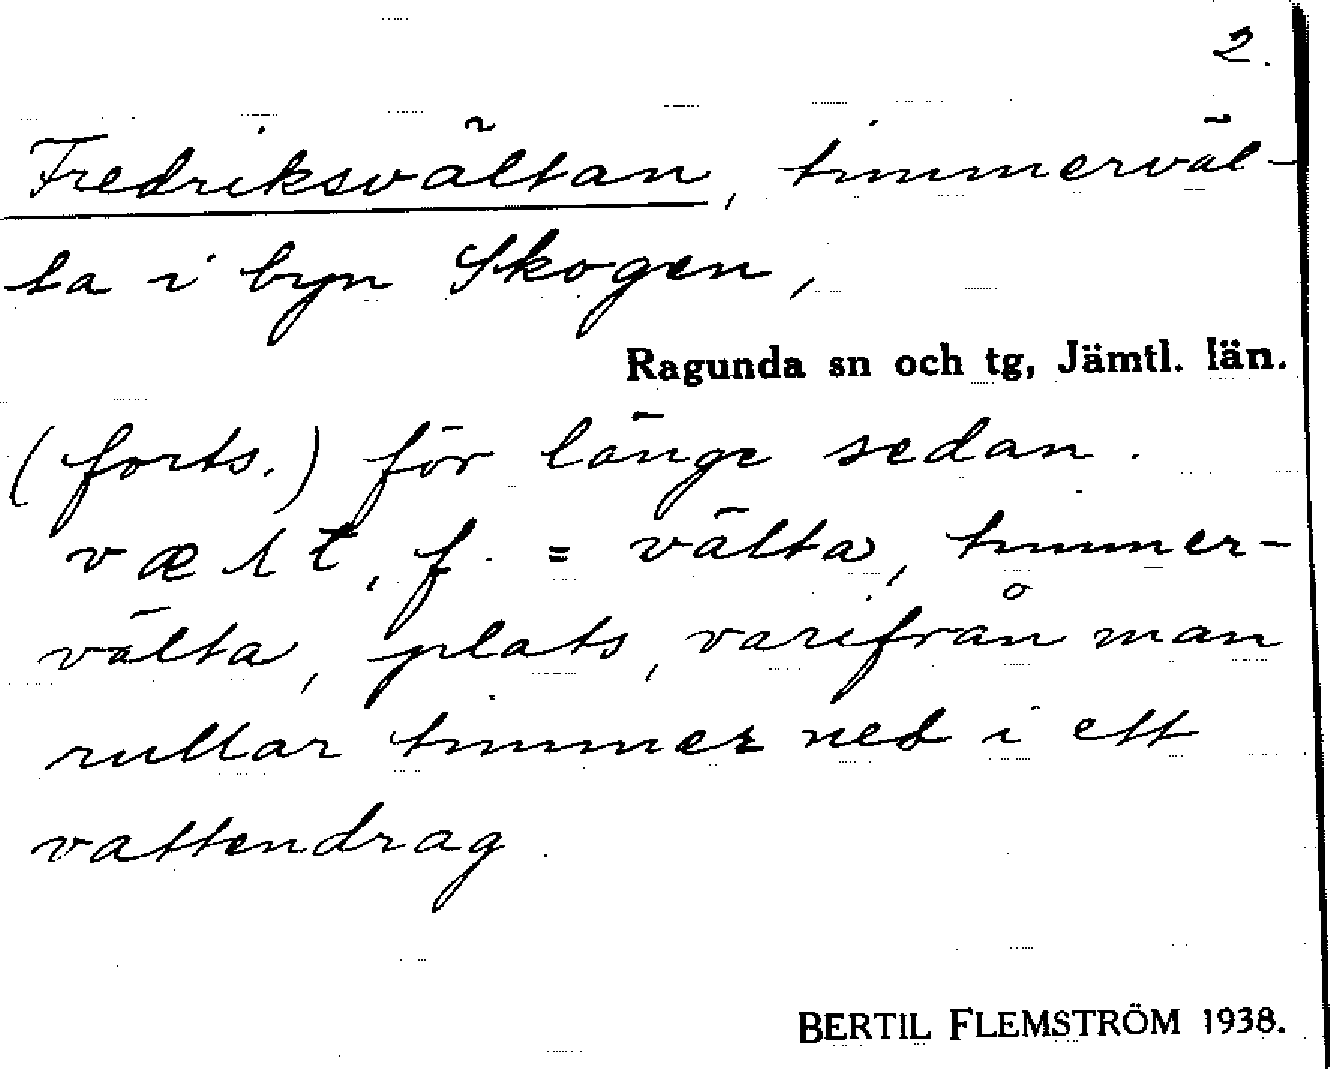 2.
Fredriksvältan, timmerväl-
ta i byn Skogen,
Ragunda sn och tg, Jämtl. län.
(forts.) för länge sedan.
væɭt, f. = välta, timmer-
välta, plats, varifrån man
rullar timmer ned i ett
vattendrag.
BERTIL FLEMSTRÖM 1938.